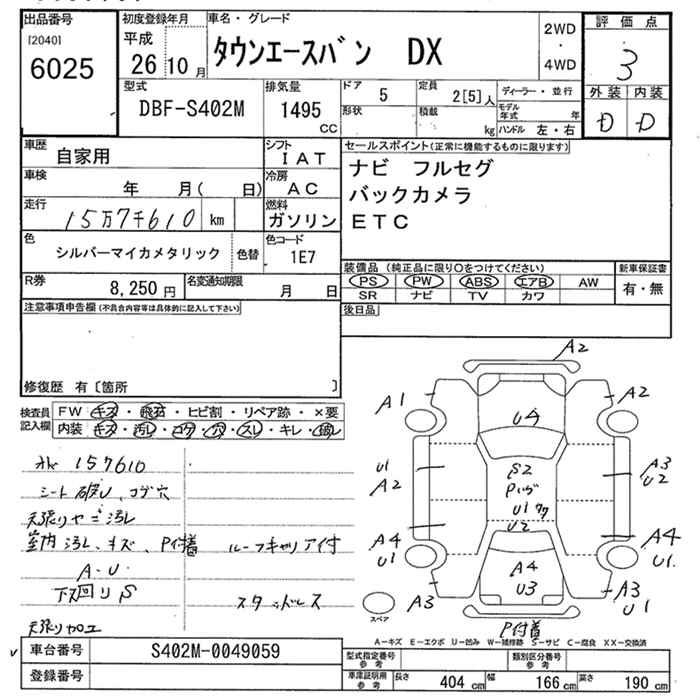 出品番号
[2040]
6025
初度登録年月
平成
26 10 月
車名・グレード
タウンエースバン DX
2WD
・
4WD
評価点
3
外装 内装
D D
型式
DBF-S402M
排気量
1495
CC
ドア 5
形状
定員 2[5]人
積載 kg
ディーラー・並行
モデル年式 年
ハンドル 左・右
車歴
自家用
シフト
IAT
車検
年 月( 日)
冷房
AC
走行
15万7千610 km
燃料
ガソリン
色
シルバーマイカメタリック
色替
色コード
1E7
R券
8,250 円
名変通知期限
月 日
セールスポイント(正常に機能するものに限ります)
ナビ フルセグ
バックカメラ
ETC
装備品(純正品に限り○をつけてください)
PS PW ABS エアB AW
SR ナビ TV カワ
新車保証書
有・無
後日品
注意事項申告欄(不具合内容等は具体的に記入して下さい)
修復歴 有〔箇所 〕
検査員
記入欄
FW キズ・飛石・ヒビ割・リペア跡・×要
内装 キズ・汚レ・コゲ・穴・スレ・キレ・破レ
157610
シート破レ、コゲ穴
天張りヤニ汚レ
室内汚レ、キズ、P付着
ルーフキャリア付
A-U
下回りS
スタッドレス
天張り加工
A2
A1
A2
U4
U1
A2
S2
U1
U2
A3
U2
A4
U1
A4
U1
A4
U3
A3
A3
U1
スペア
P付着
A-キズ E-エクボ U-凹み W-補修跡 S-サビ C-腐食 XX-交換済
車台番号
S402M-0049059
登録番号
型式指定番号
参考
類別区分番号
参考
車庫証明用
参考
長さ 404 cm 幅 166 cm 高さ 190 cm